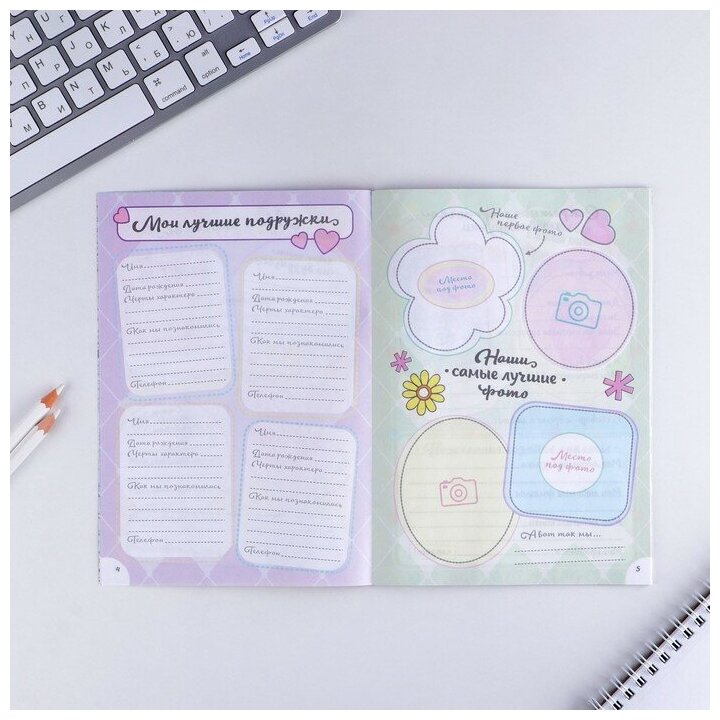 PgUp
End
PgDn
Home
alt
option
⌘
command
Мои лучшие подружки
Имя
Дата рождения
Черты характера
Как мы познакомились
Телефон
Имя
Дата рождения
Черты характера
Как мы познакомились
Телефон
Имя
Дата рождения
Черты характера
Как мы познакомились
Телефон
Имя
Дата рождения
Черты характера
Как мы познакомились
Телефон
4
Наше
первое фото
Место
под фото
Наши
• самые лучшие •
фото
Место
под фото
А вот так мы...
5